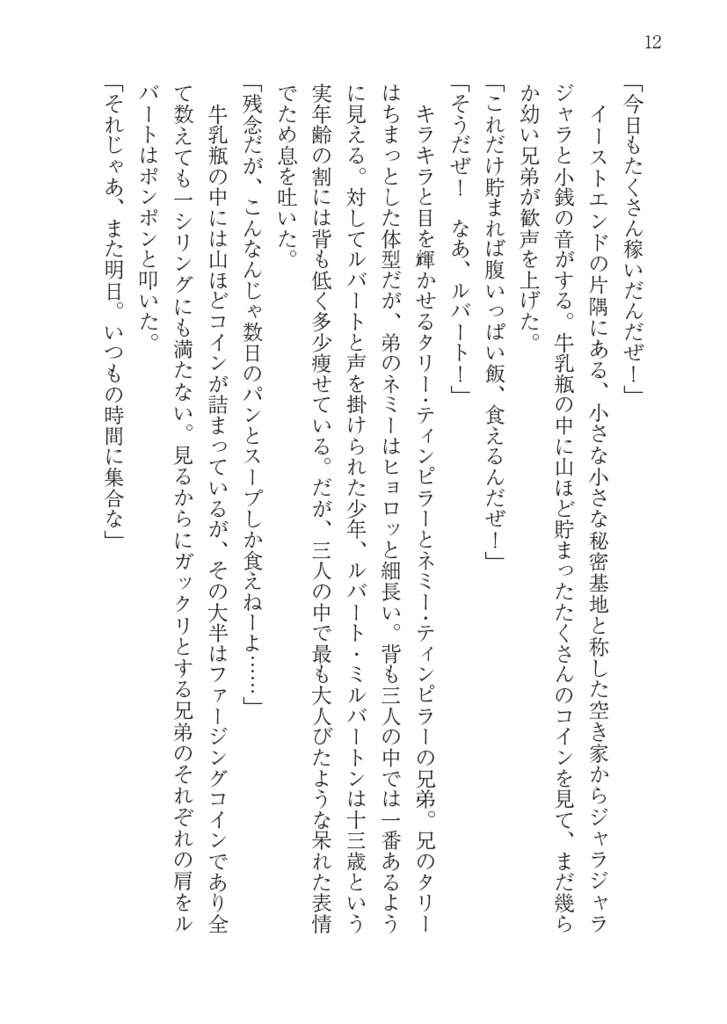 12
「今日もたくさん稼いだんだぜ！」
　イーストエンドの片隅にある、小さな小さな秘密基地と称した空き家からジャラジャラ
ジャラと小銭の音がする。牛乳瓶の中に山ほど貯まったたくさんのコインを見て、まだ幾ら
か幼い兄弟が歓声を上げた。
「これだけ貯まれば腹いっぱい飯、食えるんだぜ！」
「そうだぜ！　なあ、ルバート！」
　キラキラと目を輝かせるタリー・ティンピラーとネミー・ティンピラーの兄弟。兄のタリー
はちまっとした体型だが、弟のネミーはヒョロッと細長い。背も三人の中では一番あるよう
に見える。対してルバートと声を掛けられた少年、ルバート・ミルバートンは十三歳という
実年齢の割には背も低く多少痩せている。だが、三人の中で最も大人びたような呆れた表情
でため息を吐いた。
「残念だが、こんなんじゃ数日のパンとスープしか食えねーよ……」
　牛乳瓶の中には山ほどコインが詰まっているが、その大半はファージングコインであり全
て数えても一シリングにも満たない。見るからにガックリとする兄弟のそれぞれの肩をル
バートはポンポンと叩いた。
「それじゃあ、また明日。いつもの時間に集合な」